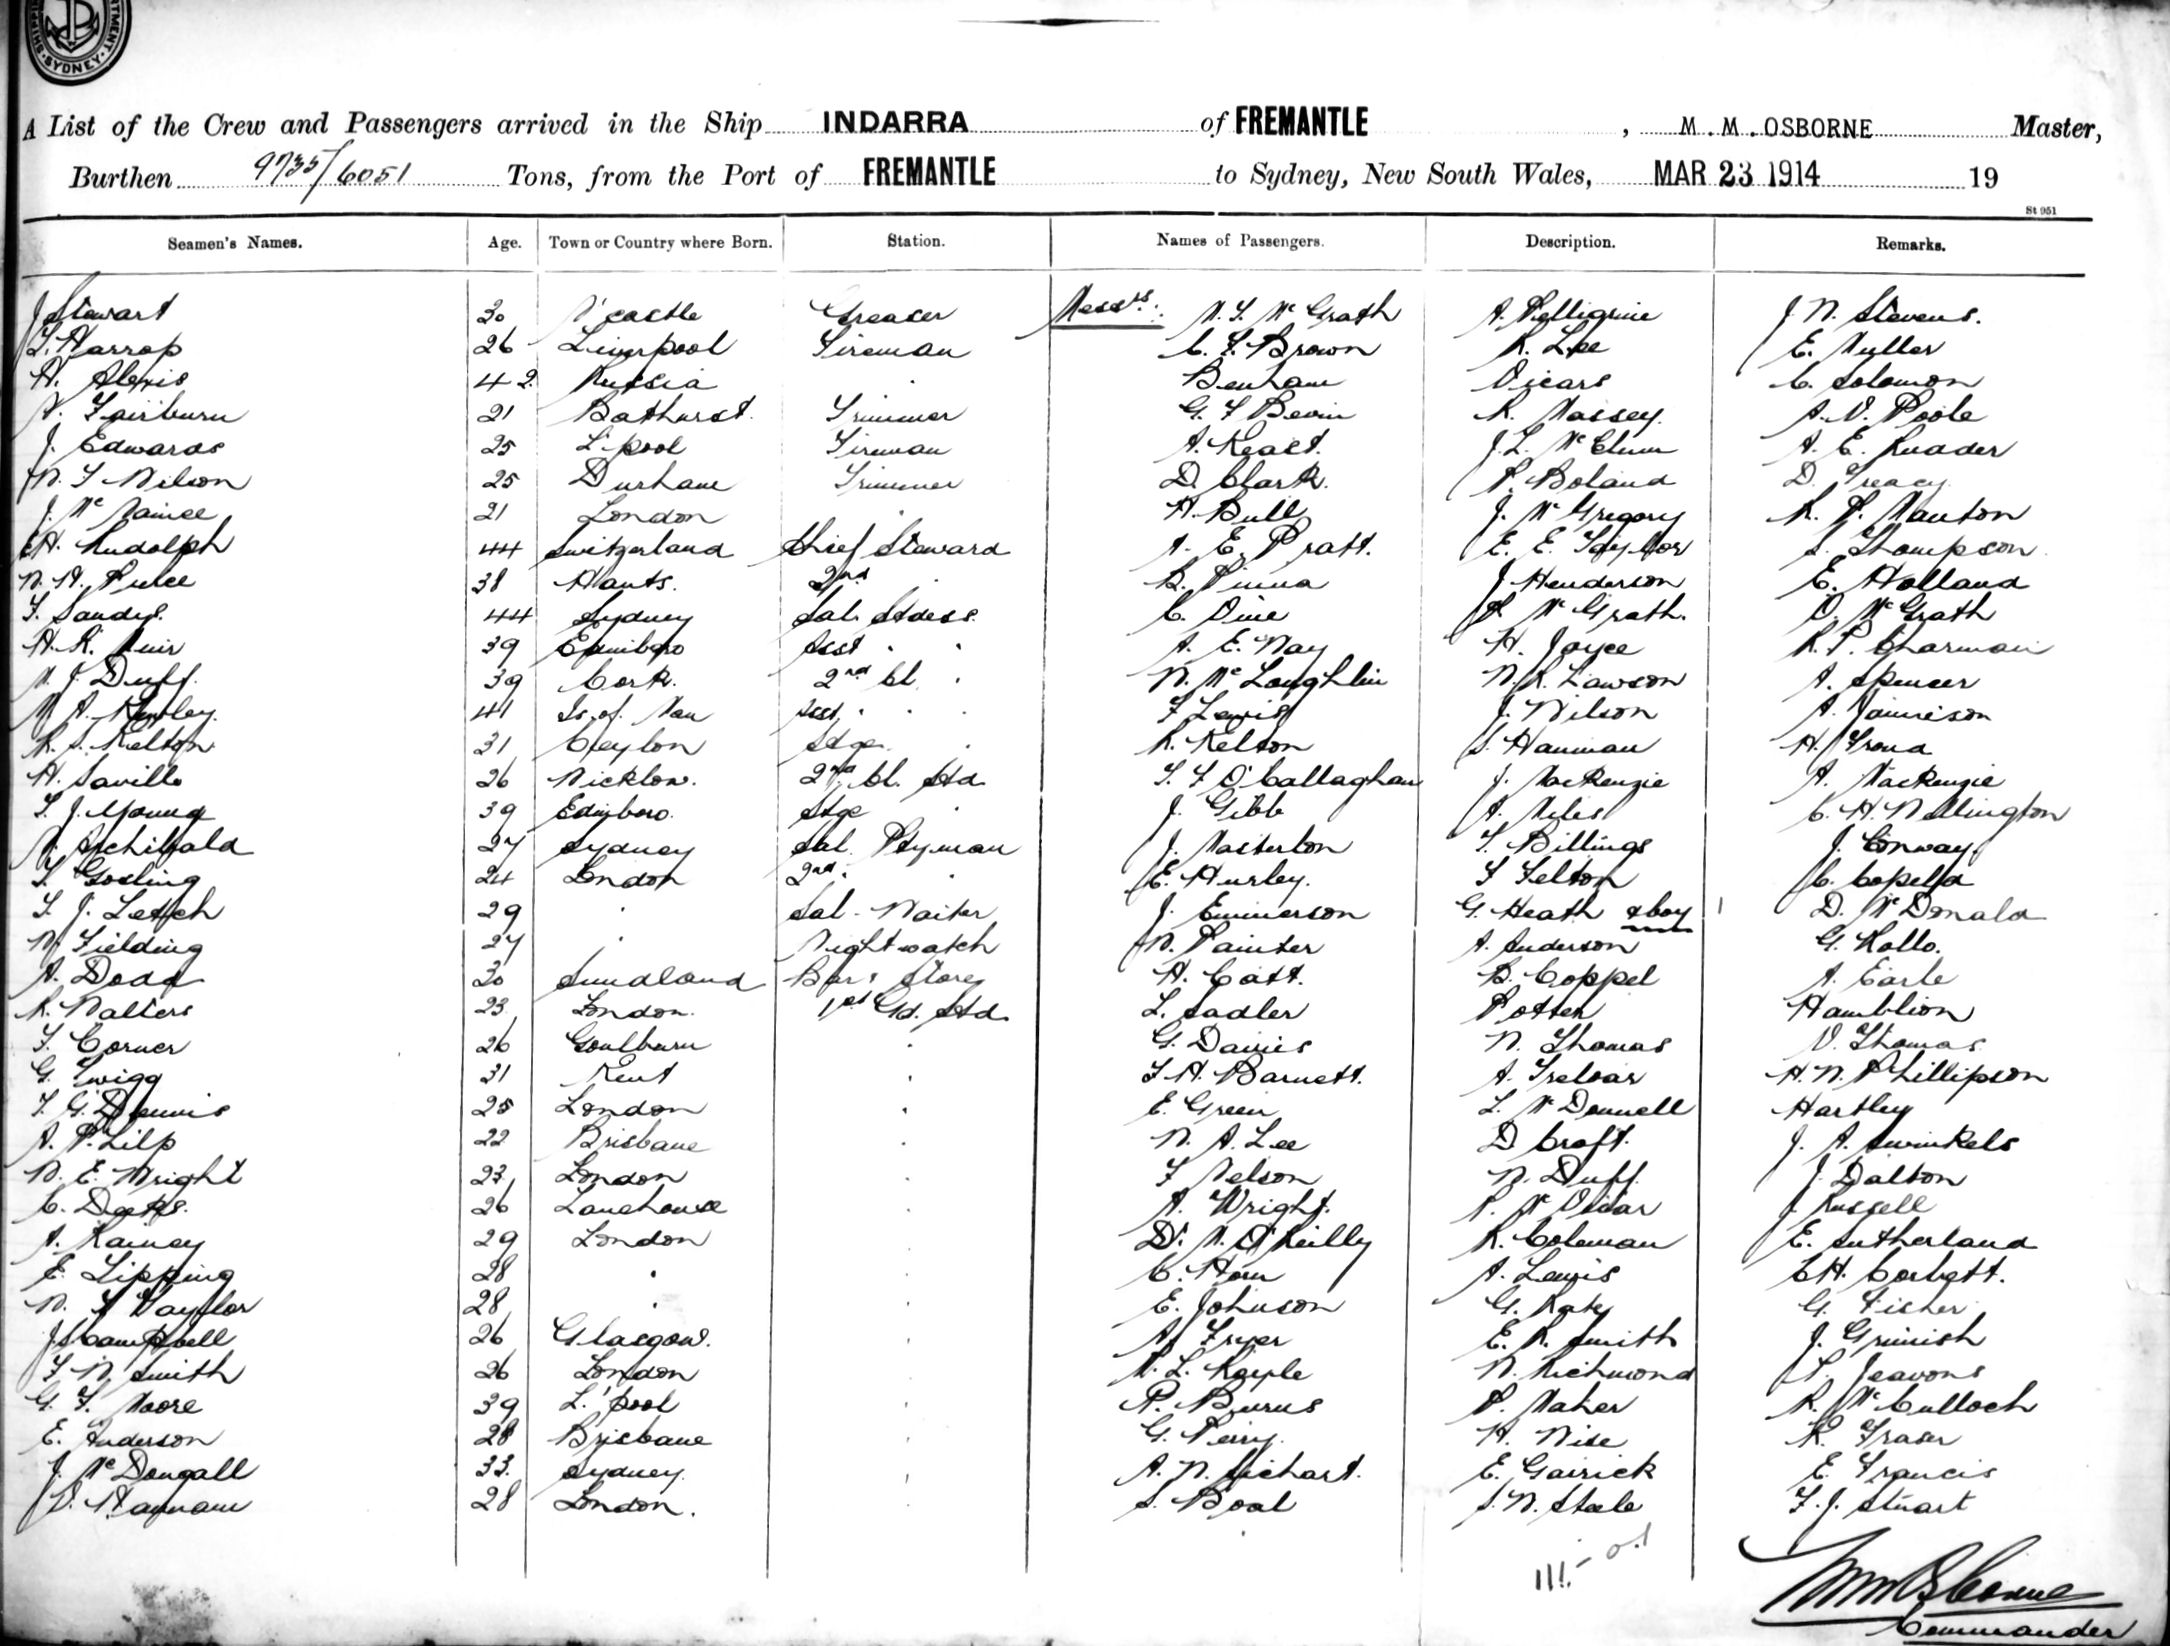 SHIPPING DEPARTMENT. SYDNEY.
A List of the Crew and Passengers arrived in the Ship INDARRA of FREMANTLE, M.M.OSBORNE Master,
Burthen 9735/6051 Tons, from the Port of FREMANTLE to Sydney, New South Wales, MAR 23 1914 19
St 951
Seamen's Names. Age. Town or Country where Born. Station. Names of Passengers. Description. Remarks.
J Stewart 30 N'castle Greaser Messrs. McGrath A. Pelligrine J. W. Stevens.
T. Harrop 26 Liverpool Fireman C. F. Brown R. Lee E. Muller
H. Alexis 42 Russia " Benham Vicars C. Solomon
Fairburn 21 Bathurst. Trimmer G. F Bevin R. Massey. A. V. Poole
J. Edwards 25 L'pool Fireman A. Keast. J. L. McClum A. E. Rudder
W. T Wilson 25 Durham Trimmer D. Clark. P. Boland D. Treacy
J. McNamee 21 London " H. Bull J. McGregory R. P. Manton
H. Rudolph 44 Switzerland Chief Steward A. E. Pratt. E. E. Taylor S. Thompson
W. H. Pulce 38 Hants. 2nd " B. Pinna J. Henderson E. Holland
F. Sandys. 44 Sydney Sal. Stdess. C. Dine P. McGrath. D. McGrath
H. R. Muir 39 Edinboro Asst " " A. E. Way H. Joyce R. P. Charman
J. Duff. 39 Cork. 2nd Cl. " W. McLoughlin W. R. Lawson A. Spencer
M A. Kewley. 41 Is. of. Man Asst. " " F Lewis J. Wilson A. Jamieson
R. S. Kelton 31 Ceylon Stge. " R. Kelton S. Hannan H. Froud
H. Saville 26 Wicklow. 2nd Cl. Std T. F O'Callaghan J. MacKenzie A. MacKenzie
T. J. Young 39 Edinboro. Stge " J. Gibb A. Miles C. H. Wellington
Archibald 27 Sydney Sal. Ptyman J. Masterton T. Billings J. Conway
T. Gosling 24 London 2nd " " E. Hurley. F Felton C. Copella
T. J. Letch 29 " Sal. Waiter J. Emmerson G. Heath & boy 1 D. McDonald
W. Fielding 27 " Nightwatch W. Painter A. Anderson G. Kollo.
A. Dodd 30 Sundland Bar & Storeg H. Catt. B. Coppel A. Earle
R. Walters 23 London. 1st Gd. Std. L. Sadler Potter Hamblion
F. Corner 26 Goulburn " G. Davies W. Thomas V. Thomas
G. Twigg 31 Kent " F. H. Barnett. A. Treloar H. W. Phillipson
T. G. Dennis 25 London " E. Green L. McDonnell Hartley
A. P. Lilp 22 Brisbane " W. A. Lee D Croft. J. A. Swinkels
W. E. Wright 23 London " F Nelson W. Duff. J. Dalton
C. Deeks. 26 Lanehouse " A. Wright. J Russell
A. Rainey 29 London " Dr. O'Reilly R. Coleman E. Sutherland
E. Lipping 28 " " C. Horn A. Lewis C H. Corbett.
W. Naylor 28 " " E. Johnson G. Katz G. Fisher
J Campbell 26 Glasgow. " A. Fryer E. R. Smith J. Grimish
F. W. Smith 26 London " Royle W. Richmond Jeavons
G. F. Moore 39 L'pool " P. Burns P. Maher R. McCulloch
E. Anderson 28 Brisbane " G. Perry. H. Wise R. Fraser
J. McDougall 33 Sydney. " A. W. E. Garrick E. Francis
Hannam 28 London. " S. Boal S. W. Steele F. J. Stuart
111.
M M Osborne
Commander